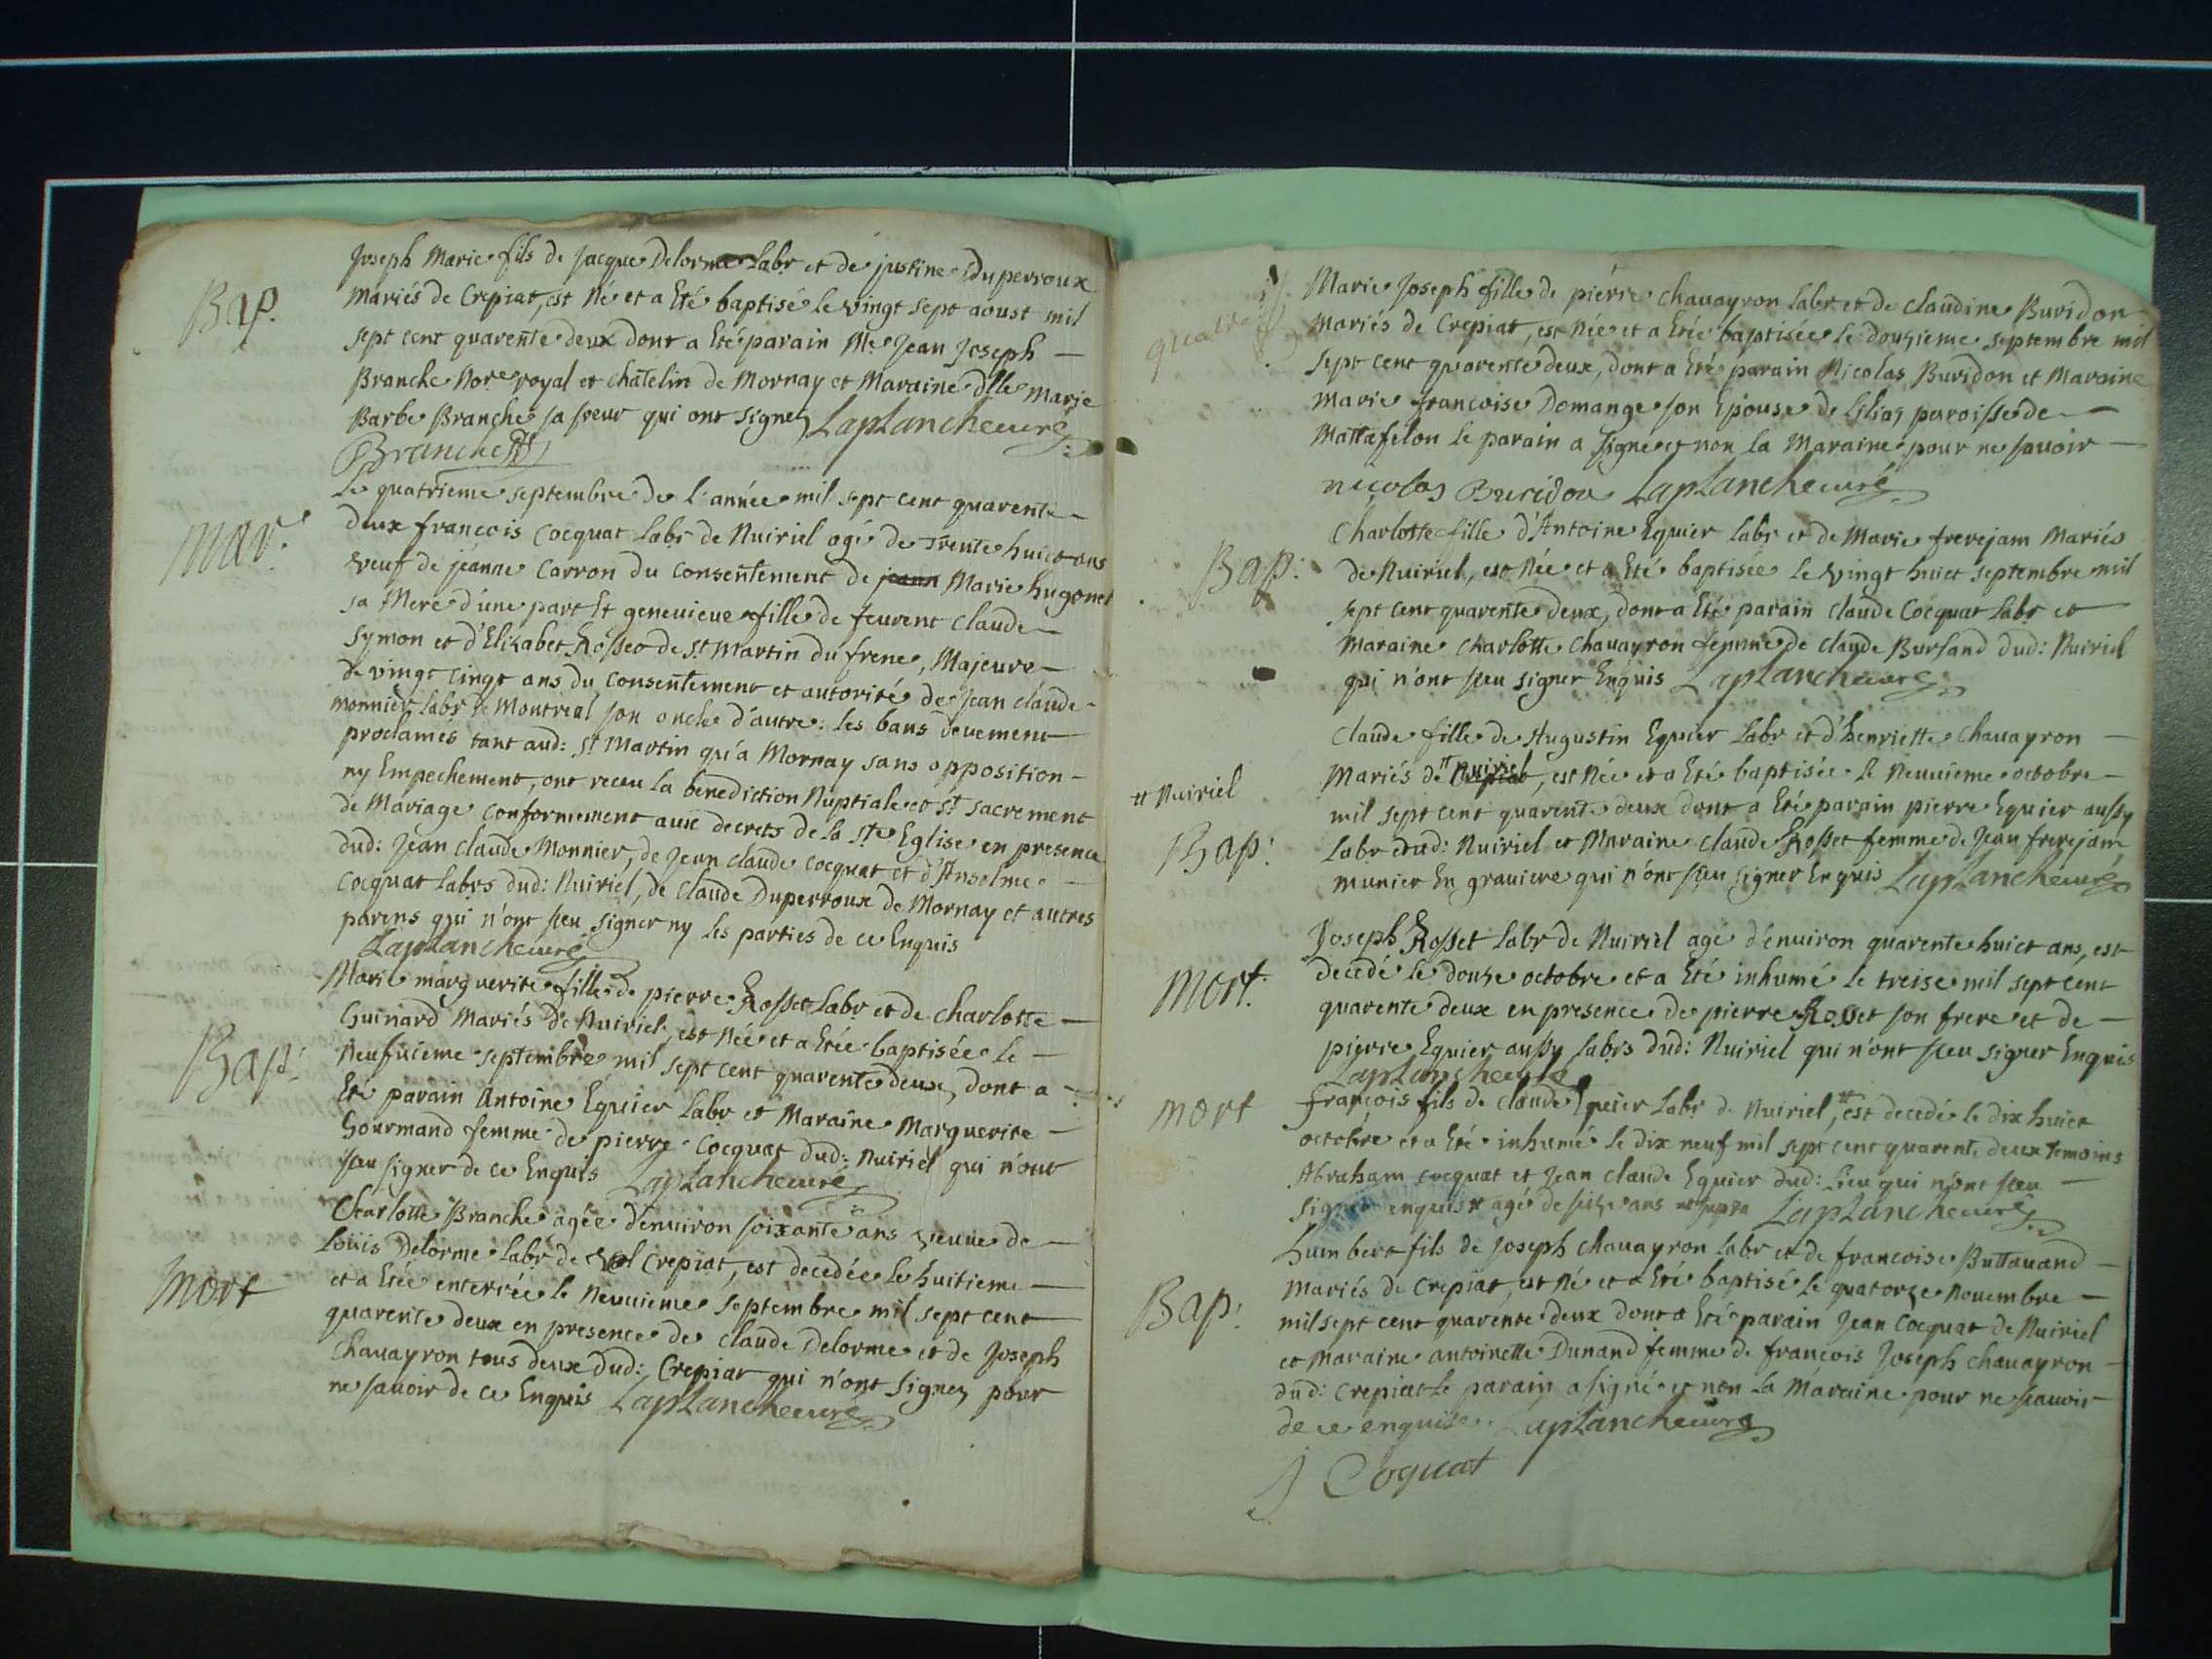 Bap.
Joseph Marie fils de Jacque Delorme Labr et de justine Duperroux
Mariés de Crepiat, est Né et a Eté baptisé le vingt sept aoust mil
sept cent quarente deux dont a Eté parain Me Jean Joseph
Branche Nore royal et chatelin de Mornay et Maraine dlle Marie
Barbe Branche sa soeur qui ont signez Laplanche curé
Branche
Mar.
Le quatrieme septembre de l'année mil sept cent quarente
deux francois Cocquat Labr de Nuiriel agé de Trente huict ans
veuf de jeanne Carron du consentement de jeann Marie hugonet
sa Mere d'une part Et genevieve fille de feurent Claude
Symon et d'Elizabet Rosseo de St Martin du frene, Majeure
de vingt cinqt ans du consentement et autorité de Jean claude
monnier labr de Montreal son oncle d'autre: les bans devement
proclamés tant aud: St Martin qu'a Mornay sans opposition
ny Empechement, ont receu la benediction Nuptiale et St sacrement
de Mariage conformement aux decrets de la Ste Eglise en presence
dud: Jean claude Monnier, de Jean claude cocquat et d'Anselme
Cocquat Labrs dud: Nuiriel, de Claude Duperroux de Mornay et autres
parens qui n'ont sceu signer ny les parties de ce Enquis
Laplanche curé
Bap:
Marie marguerite fille de pierre Rosset Labr et de Charlotte
Guinard Mariés de Nuiriel, est Née et a Etée baptisée le
Neufuieme septembre mil sept cent quarente deux, dont a
Eté parain Antoine Equier Labr et Maraine Marguerite
Gourmand femme de pierre Cocquat dud: Nuiriel qui n'ont
sceu signer de ce Enquis Laplanche curé
Mort
Charlotte Branche agée d'enuiron soixante ans veuue de
Loüis Delorme Labr de Crepiat, est decedée le huitieme
et a Etée enterrée le Neuuieme septembre mil sept cent
quarente deux en presence de claude Delorme et de Joseph
Chauayron tous deux dud: Crepiat qui n'ont signez pour
ne sauoir de ce Enquis Laplanche curé
Marie Joseph fille de pierre chauayron labr et de claudine Buridon
Mariés de Crepiat, est Née et a Etée baptisée le douzieme septembre mil
sept cent quarente deux, dont a Eté parain Nicolas Buridon et Maraine
Marie francoise Domange son Epouse de paroisse de
Mattafelon le parain a signe et non la Maraine pour ne sauoir
nicolas Buridon Laplanche curé
Bap:
Charlotte fille d'Antoine Equier Labr et de Marie frerejam Mariés
de Nuiriel, est Née et a Eté baptisée le vingt huict septembre mil
sept cent quarente deux, dont a Eté parain claude Cocquat Labr et
Maraine charlotte Chauayron femme de claude Burland dud: Nuiriel
qui n'ont sceu signer Enquis Laplanche curé
Claude fille de Augustin Equier Labr et d'henriette chauayron
Mariés de # Nuiriel, est Née et a Eté baptisée le Neuuieme octobre
# Nuiriel
mil sept cent quarente deux dont a Eté parain pierre Equier aussy
Bap:
Labr dud: Nuiriel et Maraine claude Rosset femme de Jean frerejam
munier En grauiere qui n'ont sceu signer Enquis Laplanche curé
Mort.
Joseph Rosset Labr de Nuiriel agé d'enuiron quarente huict ans, est
decedé le douze octobre et a Eté inhumé le treise mil sept cent
quarente deux en presence de pierre Rosset son frere et de
pierre Equier aussy labrs dud: Nuiriel qui n'ont sceu signer Enquis
Laplanche curé
mort
francois fils de claude Equier Labr de Nuiriel, # est decedé le dix huict
octobre et a Eté inhumé le dix neuf mil sept cent quarente deux temoins
Abraham cocquat et Jean claude Equier dud: Lieu qui n'ont sceu
signer enquis # agé de seize ans ut supra Laplanche curé
Bap:
humbert fils de Joseph chauayron labr et de francoise Buttauand
Mariés de Crepiat, est Né et a Eté baptisé le quatorze Nouembre
mil sept cent quarente deux dont a Eté parain Jean Cocquat de Nuiriel
et Maraine antoinette Dunand femme de francois Joseph chauayron
dud: Crepiat le parain a signé et non la Maraine pour ne scauoir
de ce enquise. Laplanche curé
J Coquat